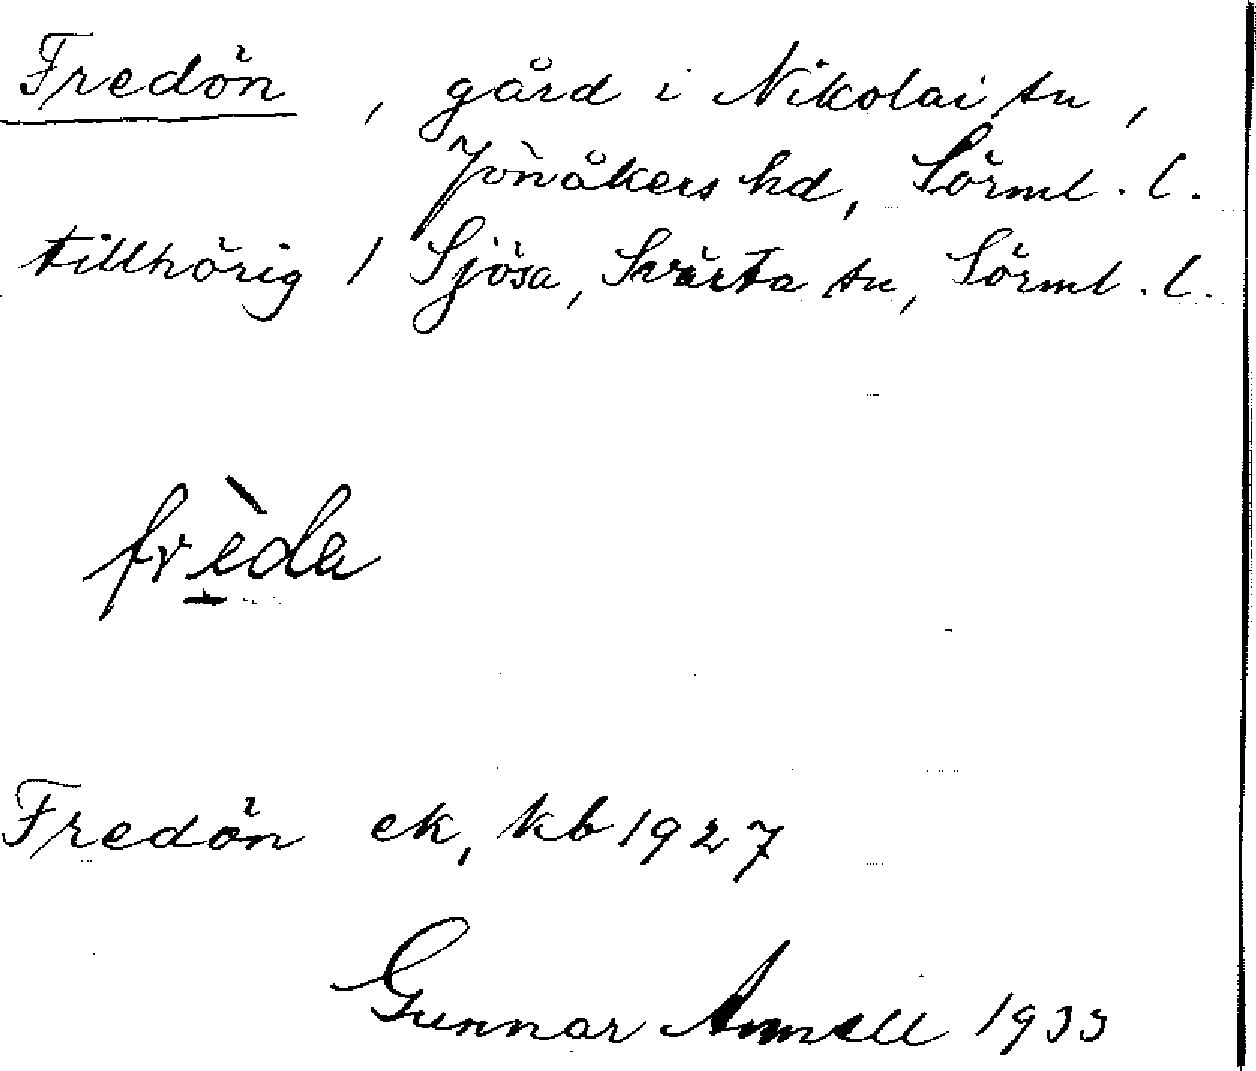 Fredön, gård i Nikolai sn,
Jönåkers hd, Sörml. l.
tillhörig 1 Sjösa, Svärta sn, Sörml. l.
frèda
Fredön ek, kb 1927
Gunnar 1933